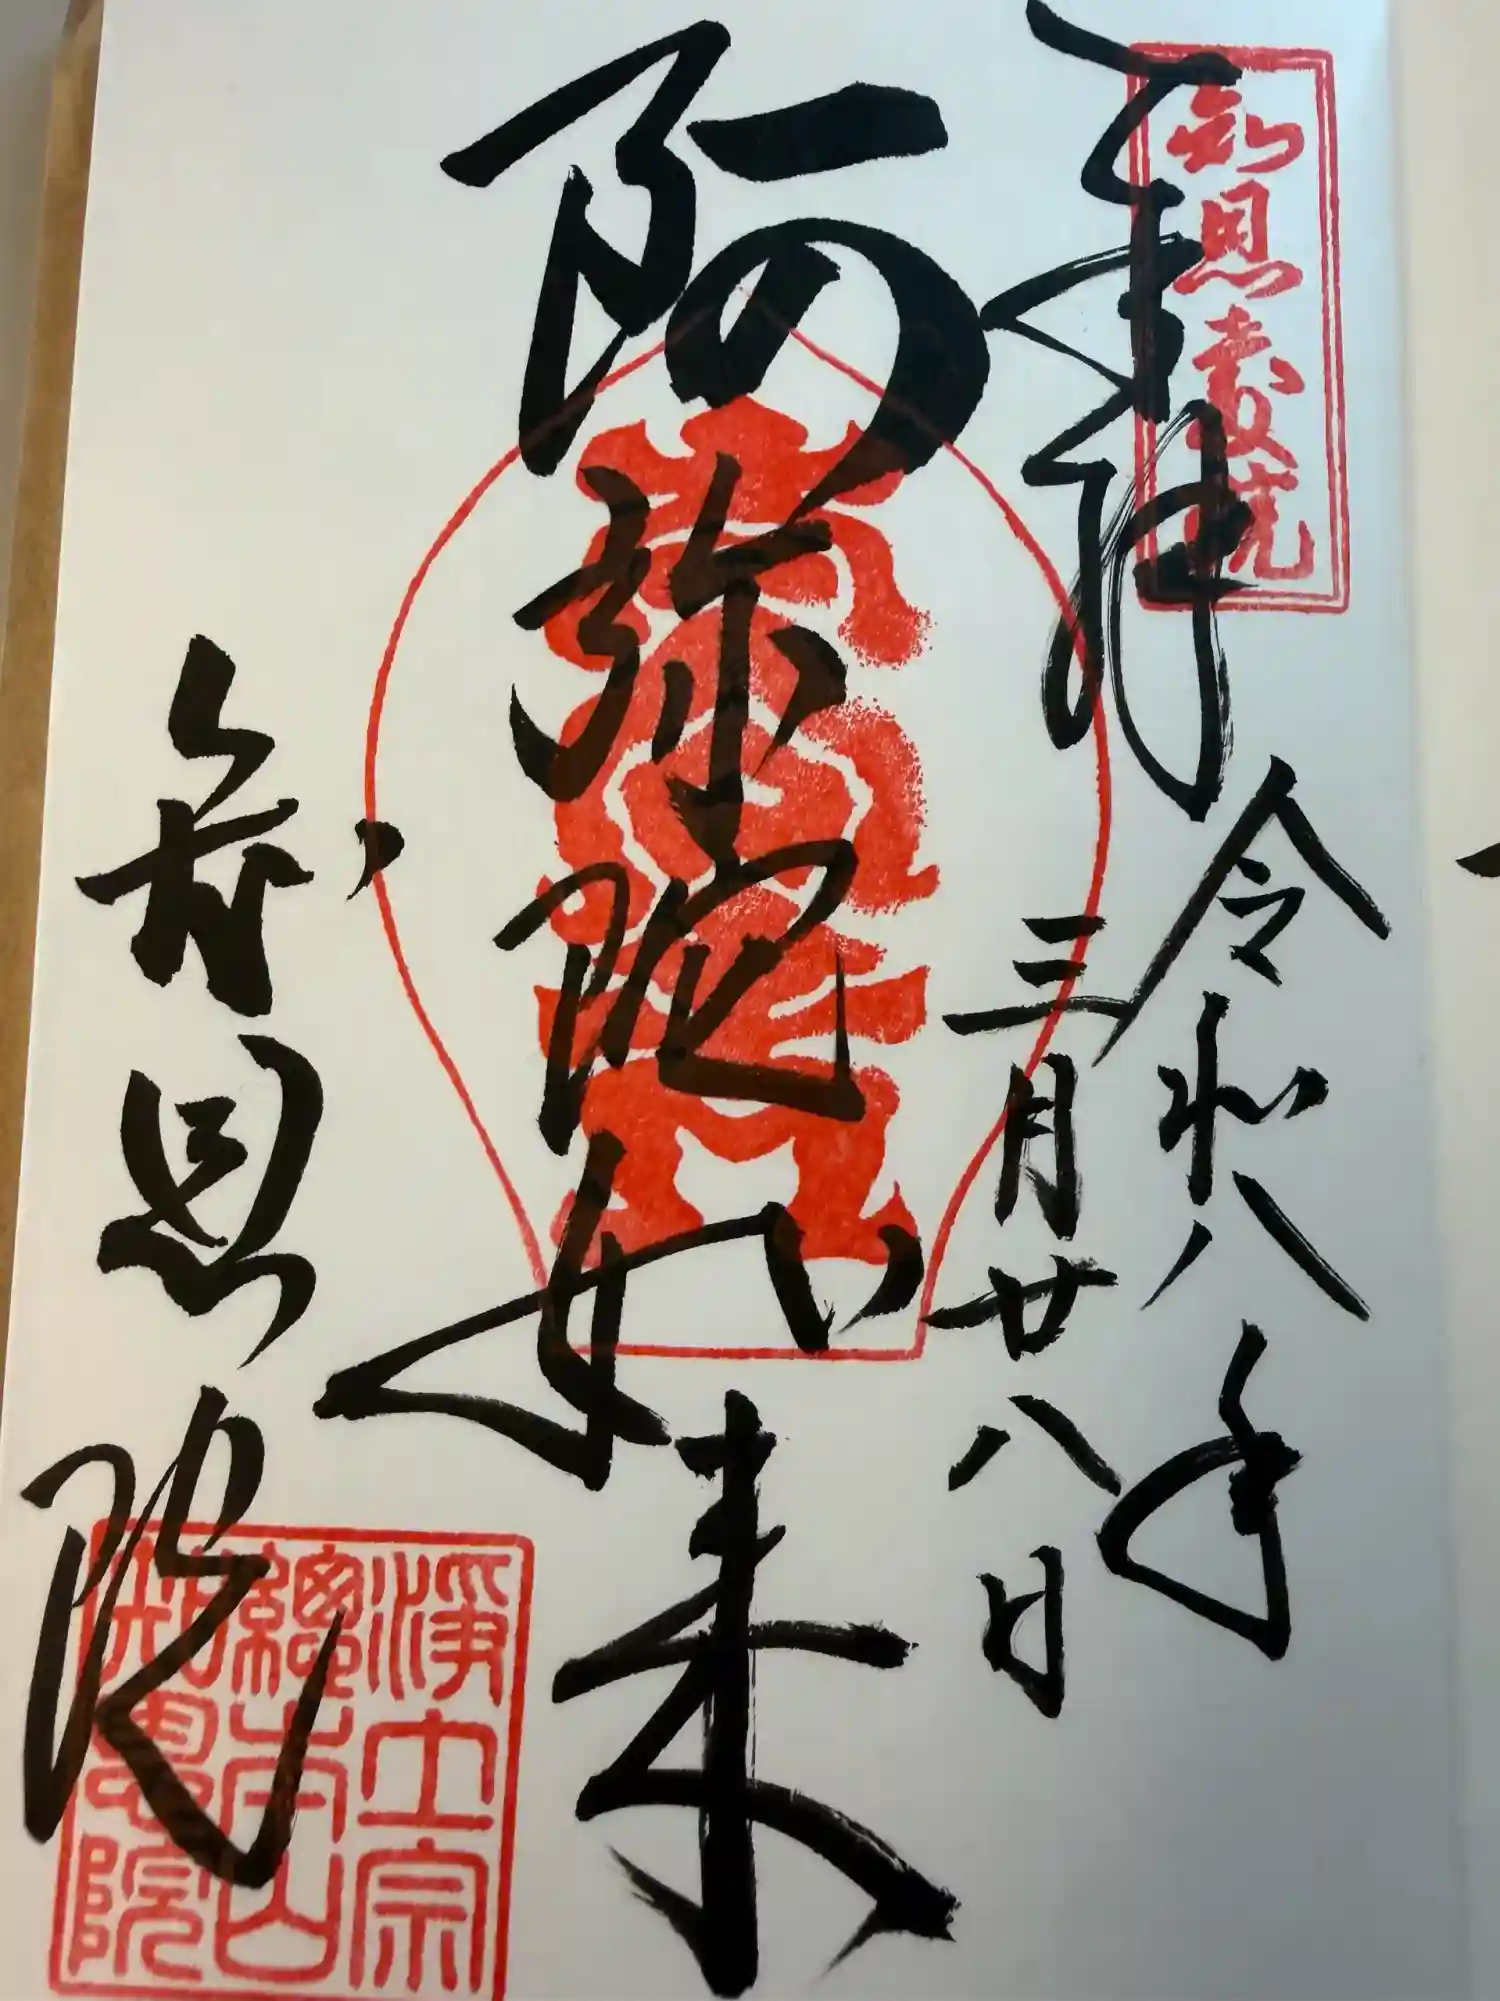 奉拝
知恩教院
令和八年
三月廿八日
阿弥陀如来
知恩院
淨土宗
總本山
知恩院